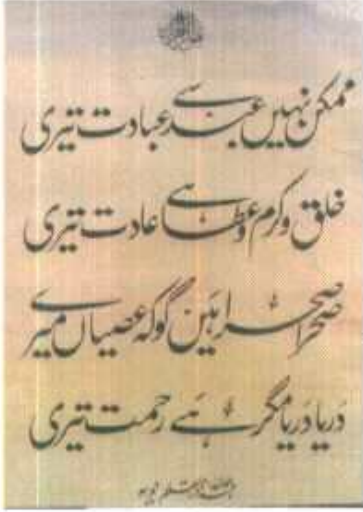 ممکن نہیں عبد سے عبادت تیری
خلق و کرم و عطا ہے عادت تیری
صحرا صحرا ہیں گو کہ عصیاں میرے
دریا دریا مگر ہے رحمت تیری